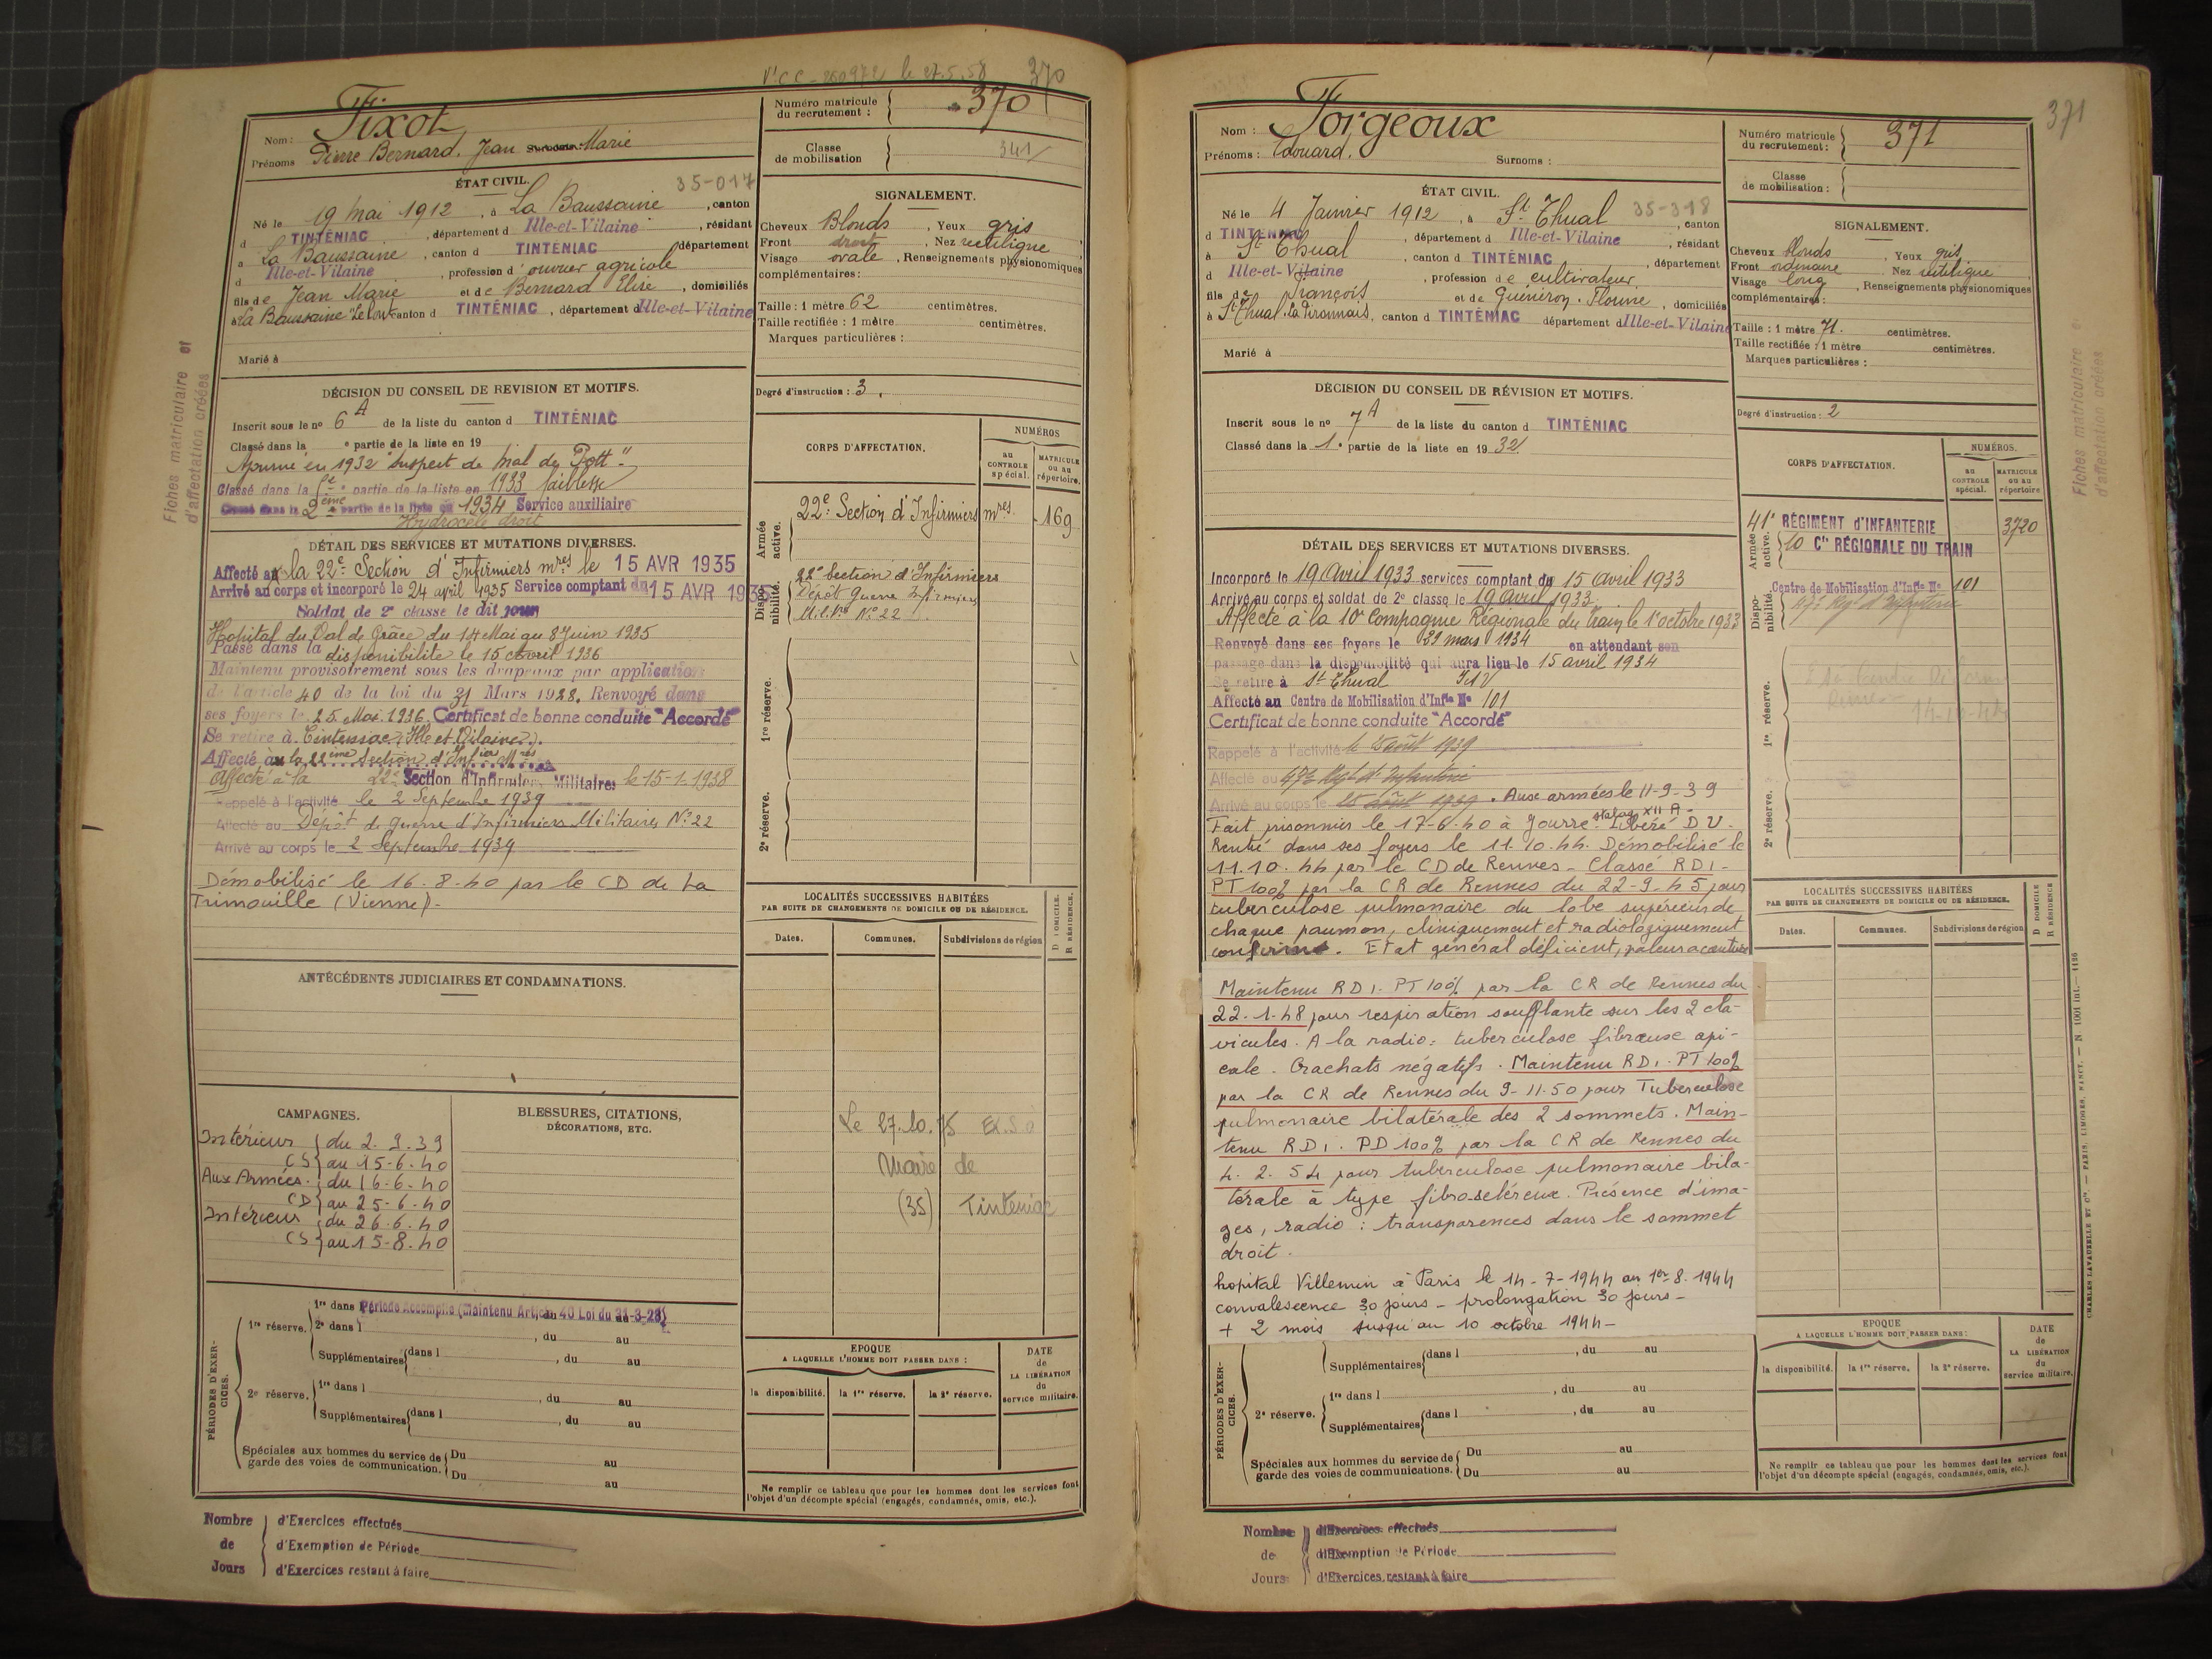 Vt CC - 260972 le 27.5.58 370
Fixot
Nom :
Prénoms Pierre Bernard, Jean Marie
Numéro matricule du recrutement : 370
Classe de mobilisation 341/
ÉTAT CIVIL. 35-017
Né le 19 mai 1912, à La Baussaine, canton
d TINTÉNIAC, département d Ille-et-Vilaine, résidant
à La Baussaine, canton d TINTÉNIAC département
d Ille-et-Vilaine, profession d' ouvrier agricole
fils de Jean Marie et de Bernard Elise, domiciliés
à La Baussaine canton d TINTÉNIAC, département d Ille-et-Vilaine
Marié à
SIGNALEMENT.
Cheveux Blonds, Yeux gris
Front droit, Nez rectiligne
Visage ovale, Renseignements physionomiques
complémentaires :
Taille : 1 mètre 62 centimètres.
Taille rectifiée : 1 mètre centimètres.
Marques particulières :
Degré d'instruction : 3.
DÉCISION DU CONSEIL DE REVISION ET MOTIFS.
Inscrit sous le no 6A de la liste du canton d TINTÉNIAC
Classé dans la e partie de la liste en 19
Ajourné en 1932 "Suspect de mal de Pott"
Classé dans la 1e partie de la liste en 1933 faiblesse
Classé dans la 2ème partie de la liste en 1934 Service auxiliaire
Hydrocèle droit
DÉTAIL DES SERVICES ET MUTATIONS DIVERSES.
Affecté à la 22e Section d'Infirmiers mres le 15 AVR 1935
Arrivé au corps et incorporé le 24 avril 1935 Service comptant du 15 AVR 1935
Soldat de 2e classe le dit jour
Hopital du Val de Grâce du 14 Mai au 8 Juin 1935
Passé dans la disponibilité le 15 Avril 1936
Maintenu provisoirement sous les drapeaux par application
de l'article 40 de la loi du 31 Mars 1928. Renvoyé dans
ses foyers le 25 Mai 1936. Certificat de bonne conduite "Accordé"
Se retire à Tinténiac (Ille et Vilaine).
Affecté à la 22ème Section d'Infiers Mres
Affecté à la 22e Section d'Infirmiers Militaires le 15-1-1938
Rappelé à l'activité le 2 Septembre 1939
Affecté au Dépôt de guerre d'Infirmiers Militaires No 22
Arrivé au corps le 2 Septembre 1939
Démobilisé le 16-8-40 par le CD de La
Trimouille (Vienne).
CORPS D'AFFECTATION.
NUMÉROS
au CONTROLE spécial.
MATRICULE ou au répertoire.
Armée active.
22e Section d'Infirmiers mres 169
Disponibilité.
22e Section d'Infirmiers
Dépôt guerre Infirmiers
Milres No 22
1re réserve.
2e réserve.
ANTÉCÉDENTS JUDICIAIRES ET CONDAMNATIONS.
CAMPAGNES.
Intérieur du 2-9-39
CS au 15-6-40
Aux Armées du 16-6-40
CD au 25-6-40
Intérieur du 26-6-40
CS au 15-8-40
BLESSURES, CITATIONS,
DÉCORATIONS, ETC.
LOCALITÉS SUCCESSIVES HABITÉES
PAR SUITE DE CHANGEMENTS DE DOMICILE OU DE RÉSIDENCE.
Dates. Communes. Subdivisions de région D DOMICILE. R RÉSIDENCE.
Le 27.10.75
Maire de
(35) Tinténiac
PÉRIODES D'EXERCICES.
1re réserve. 1re dans l Période Accomplie (Maintenu Article 40 Loi du 31-3-28)
2e dans l, du au
Supplémentaires dans l, du au
2e réserve. 1re dans l, du au
Supplémentaires dans l, du au
Spéciales aux hommes du service de garde des voies de communication. Du au
Du au
EPOQUE
A LAQUELLE L'HOMME DOIT PASSER DANS :
la disponibilité. la 1re réserve. la 2e réserve.
DATE de LA LIBÉRATION du service militaire.
Ne remplir ce tableau que pour les hommes dont les services font
l'objet d'un décompte spécial (engagés, condamnés, omis, etc.).
Nombre de Jours
d'Exercices effectués
d'Exemption de Période
d'Exercices restant à faire
Fiches matriculaire et
d'affectation créées
371
Nom : Forgeoux
Prénoms : Edouard. Surnoms :
Numéro matricule du recrutement : 371
Classe de mobilisation :
ÉTAT CIVIL.
Né le 4 Janvier 1912, à St Thual 35-318, canton
d TINTÉNIAC, département d Ille-et-Vilaine, résidant
à St Thual, canton d TINTÉNIAC, département
d Ille-et-Vilaine, profession de cultivateur
fils de François et de Guénéron, domiciliés
à St Thual, canton d TINTÉNIAC département d Ille-et-Vilaine
Marié à
SIGNALEMENT.
Cheveux blonds, Yeux gris
Front ordinaire. Nez rectiligne
Visage long, Renseignements physionomiques
complémentaires :
Taille : 1 mètre 71. centimètres.
Taille rectifiée : 1 mètre centimètres.
Marques particulières :
Degré d'instruction : 2
DÉCISION DU CONSEIL DE RÉVISION ET MOTIFS.
Inscrit sous le no 7A de la liste du canton d TINTÉNIAC
Classé dans la 1e partie de la liste en 1932.
DÉTAIL DES SERVICES ET MUTATIONS DIVERSES.
Incorporé le 19 Avril 1933 services comptant du 15 avril 1933
Arrivé au corps et soldat de 2e classe le 19 avril 1933.
Affecté à la 10e Compagnie Régionale du Train le 1er octobre 1933
Renvoyé dans ses foyers le 29 mars 1934 en attendant son
passage dans la disponibilité qui aura lieu le 15 avril 1934
Se retire à St Thual I et V
Affecté au Centre de Mobilisation d'Infie No 101
Certificat de bonne conduite "Accordé"
Rappelé à l'activité le 25 août 1939
Affecté au 47e Rgt d'Infanterie
Arrivé au corps le 25 août 1939. Aux armées le 11-9-39
Fait prisonnier le 17-6-40 à Jourre. Stalag XII A - Libéré D.U.
Rentré dans ses foyers le 11.10.44. Démobilisé le
11.10.44 par le CD de Rennes - Classé RD1 -
PT 100% par la CR de Rennes du 22-9-45 pour
tuberculose pulmonaire du lobe supérieur de
chaque poumon, cliniquement et radiologiquement
confirmé. Etat général déficient, paleur accentuée
Maintenu RD1. PT 100% par la CR de Rennes du
22-1-48 pour respiration soufflante sur les 2 cla-
vicules. A la radio : tuberculose fibreuse api-
cale. Crachats négatifs. Maintenu RD1. PT 100%
par la CR de Rennes du 9-11-50 pour Tuberculose
pulmonaire bilatérale des 2 sommets. Main-
tenu RD1. PD 100% par la CR de Rennes du
4-2-54 pour tuberculose pulmonaire bila-
térale à type fibro-scléreux. Présence d'ima-
ges, radio : transparences dans le sommet
droit.
hopital Villemin à Paris le 14-7-1944 au 1er 8-1944
convalescence 30 jours - prolongation 30 jours -
+ 2 mois jusqu'au 10 octobre 1944 -
CORPS D'AFFECTATION.
NUMÉROS.
au CONTROLE spécial.
MATRICULE ou au répertoire
Armée active.
41e RÉGIMENT d'INFANTERIE 3720
10 Cie RÉGIONALE DU TRAIN
Disponibilité
Centre de Mobilisation d'Infie No 101
47e Rgt d'Infanterie
1re réserve.
2e réserve.
LOCALITÉS SUCCESSIVES HABITÉES
PAR SUITE DE CHANGEMENTS DE DOMICILE OU DE RÉSIDENCE.
Dates. Communes. Subdivisions de région D DOMICILE R RÉSIDENCE
PÉRIODES D'EXERCICES.
Supplémentaires dans l, du au
2e réserve. 1re dans l, du au
Supplémentaires dans l, du au
Spéciales aux hommes du service de garde des voies de communications. Du au
Du au
EPOQUE
A LAQUELLE L'HOMME DOIT PASSER DANS :
la disponibilité. la 1re réserve. la 2e réserve.
DATE de LA LIBÉRATION du service militaire.
Ne remplir ce tableau que pour les hommes dont les services font
l'objet d'un décompte spécial (engagés, condamnés, omis, etc.).
Nombre de Jours
d'Exercices effectués
d'Exemption de Période
d'Exercices restant à faire
Fiches matriculaire et
d'affectation créées
CHARLES LAVAUZELLE ET Cie. — PARIS, LIMOGES, NANCY. — N 1001 int. — 1126